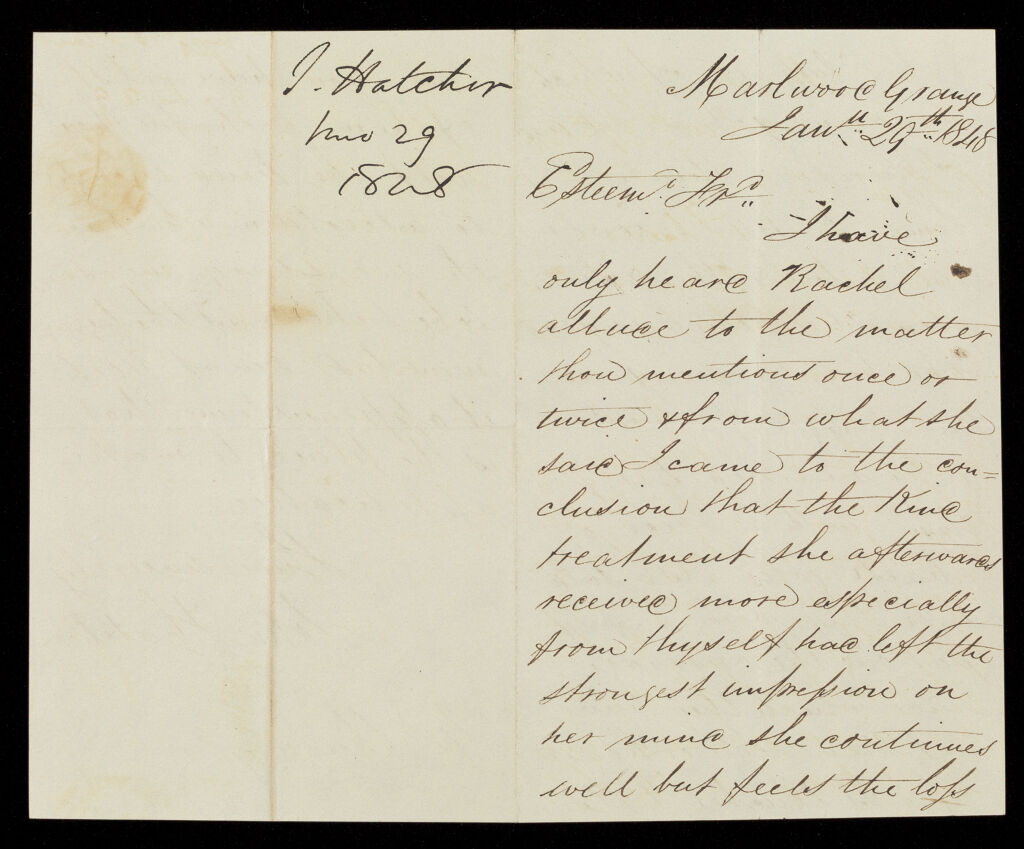 J. Hatcher
1mo 29
1848
Marlwood Grange
Jany 29th 1848
Esteemd Frd
I have
only heard Rachel
allude to the matter
thou mentions once or
twice & from what she
said I came to the con=
clusion that the kind
treatment she afterwards
received more especially
from thyself had left the
strongest impression on
her mind she continues
well but feels the loss